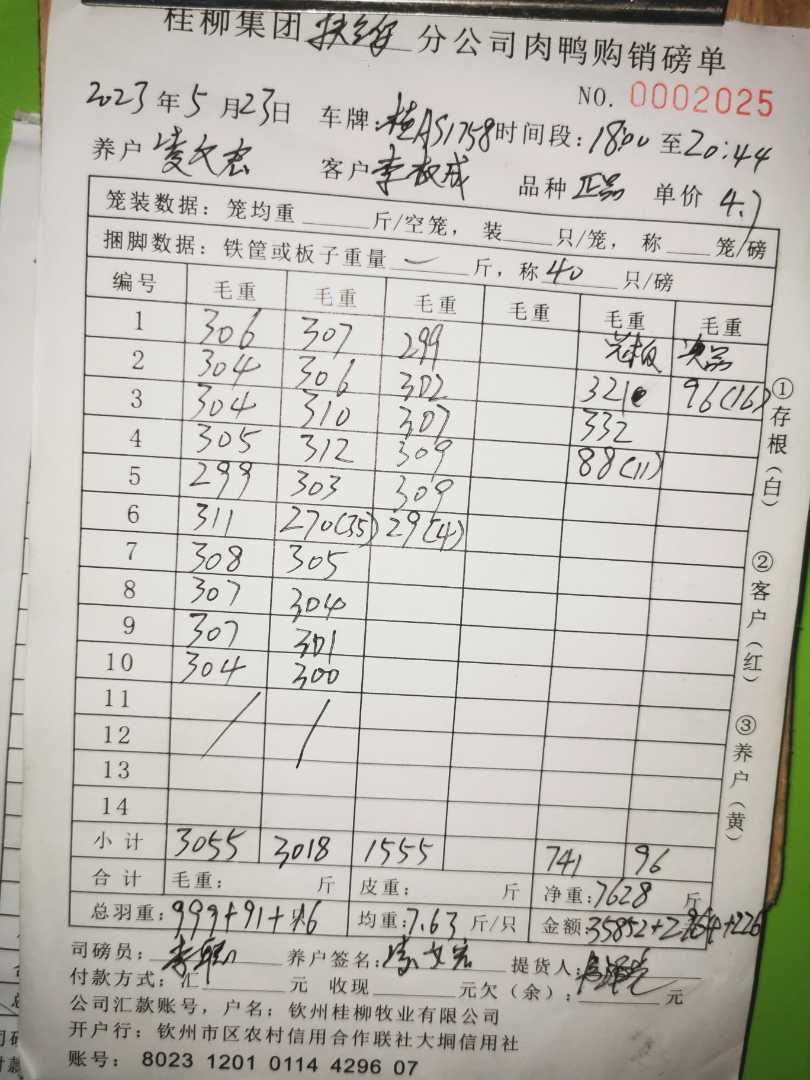 桂柳集团扶绥分公司肉鸭购销磅单
NO. 0002025
2023年5月23日 车牌:桂AS1758时间段:18:00至20:44
养户凌文宏 客户李权成 品种正品 单价 4.7
笼装数据:笼均重 斤/空笼,装 只/笼,称 笼/磅
捆脚数据:铁筐或板子重量 一 斤,称40只/磅
编号 毛重 毛重 毛重 毛重 毛重 毛重
1 306 307 299
2 304 306 302 321 96(16)
3 304 310 307 332
4 305 312 309 88(11)
5 299 303 309
6 311 270(35) 29(4)
7 308 305
8 307 304
9 307 301
10 304 300
11
12
13
14
小计 3055 3018 1555 741 96
合计 毛重: 斤 皮重: 斤 净重:7628 斤
总羽重:999+91+16 均重:7.63 斤/只 金额:35852+2964+226
司磅员: 养户签名:凌文宏 提货人:
付款方式:汇 元 收现 元欠(余): 元
公司汇款账号,户名:钦州桂柳牧业有限公司
开户行:钦州市区农村信用合作联社大垌信用社
账号: 8023 1201 0114 4296 07
①存根(白)
②客户(红)
③养户(黄)